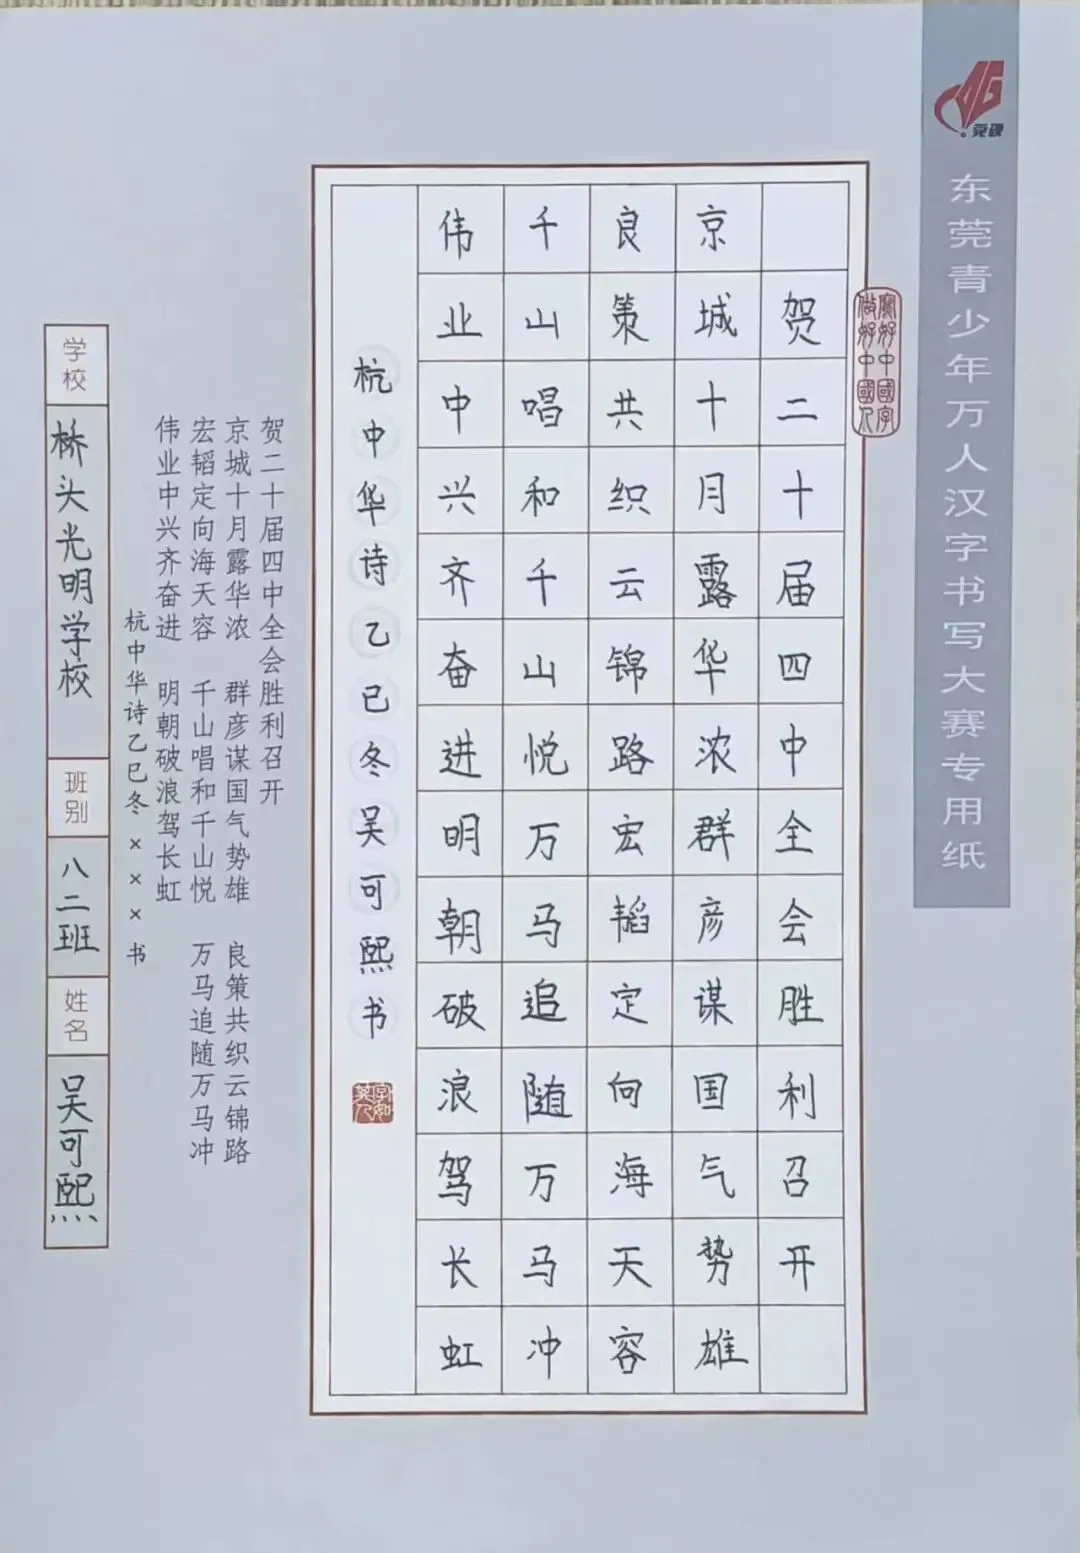 莞硬
东莞青少年万人汉字书写大赛专用纸
写好中國字
做好中國人
贺二十届四中全会胜利召开
京城十月露华浓群彦谋国气势雄
良策共织云锦路宏韬定向海天容
千山唱和千山悦万马追随万马冲
伟业中兴齐奋进明朝破浪驾长虹
杭中华诗乙巳冬吴可熙书
字如其人
贺二十届四中全会胜利召开
京城十月露华浓 群彦谋国气势雄 良策共织云锦路
宏韬定向海天容 千山唱和千山悦 万马追随万马冲
伟业中兴齐奋进 明朝破浪驾长虹
杭中华诗乙巳冬×××书
学校 桥头光明学校 班别 八二班 姓名 吴可熙